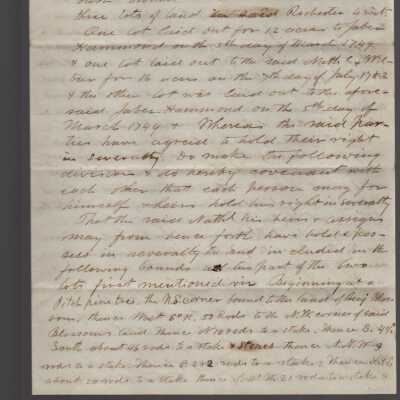 three lots of land in said Rochester to wit.
One Lot laid out for 12 acres to Jabez
Hammond on the 5th day of March 1744
& one lot laid out to the said Nathl & Wil-
bur for 16 acres on the 7th day of July 1742
& the other lot was laid out to the afore-
said Jabez Hammond on the 5th day of
March 1744 & Whereas the said par-
ties have agreed to hold their right
in severalty. Do make the following
division & do hereby covenant with
each other that each person may for
himself & heirs hold his right in severalty
That the said Nathl his heirs & assigns
may from hence forth have hold & pos-
sess in severalty the land included in the
following bounds as his part of the two
lots first mentioned viz Beginning at a
Pitch pine tree, the corner bound to the land of Benj Blos-
som, thence West 50 Rods to the corner of said
Blossoms land thence rods to a stake, thence
South about 46 rods to a stake & stones thence N.W.
rods to a stake thence rods to a stake; thence
about 20 rods to a stake thence 21 rods to a stake &